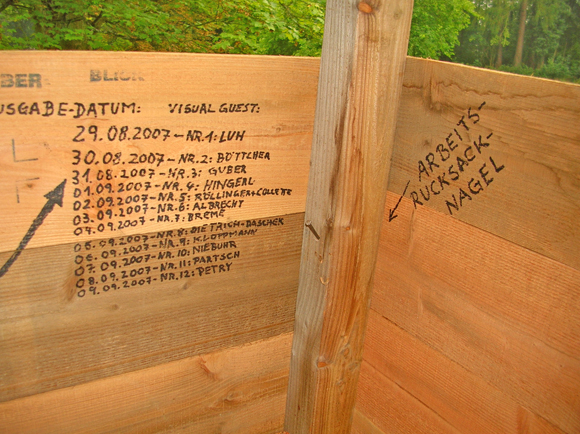 BER BLICK
USGABE-DATUM: VISUAL GUEST:
29.08.2007-NR.1: LUH
30.08.2007-NR.2: BÖTTCHER
31.08.2007-NR.3: GUBER
01.09.2007-NR.4: HINGERL
02.09.2007-NR.5: RÖLLINGER+COLLETTE
03.09.2007-NR.6: ALBRECHT
04.09.2007-NR.7: BREME
05.09.2007-NR.8: DIETRICH-DASCHEK
06.09.2007-NR.9: KLOPPMANN
07.09.2007-NR.10: NIEBUHR
08.09.2007-NR.11: PARTSCH
09.09.2007-NR.12: PETRY
ARBEITS-
RUCKSACK-
NAGEL